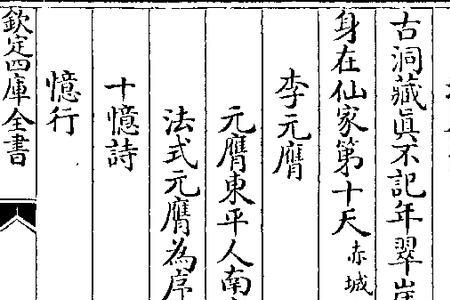 古洞藏眞不記年翠崖
身在仙家第十天赤城
李元膺
元膺東平人南
法式元膺為序
十憶詩
憶行
欽定四庫全書